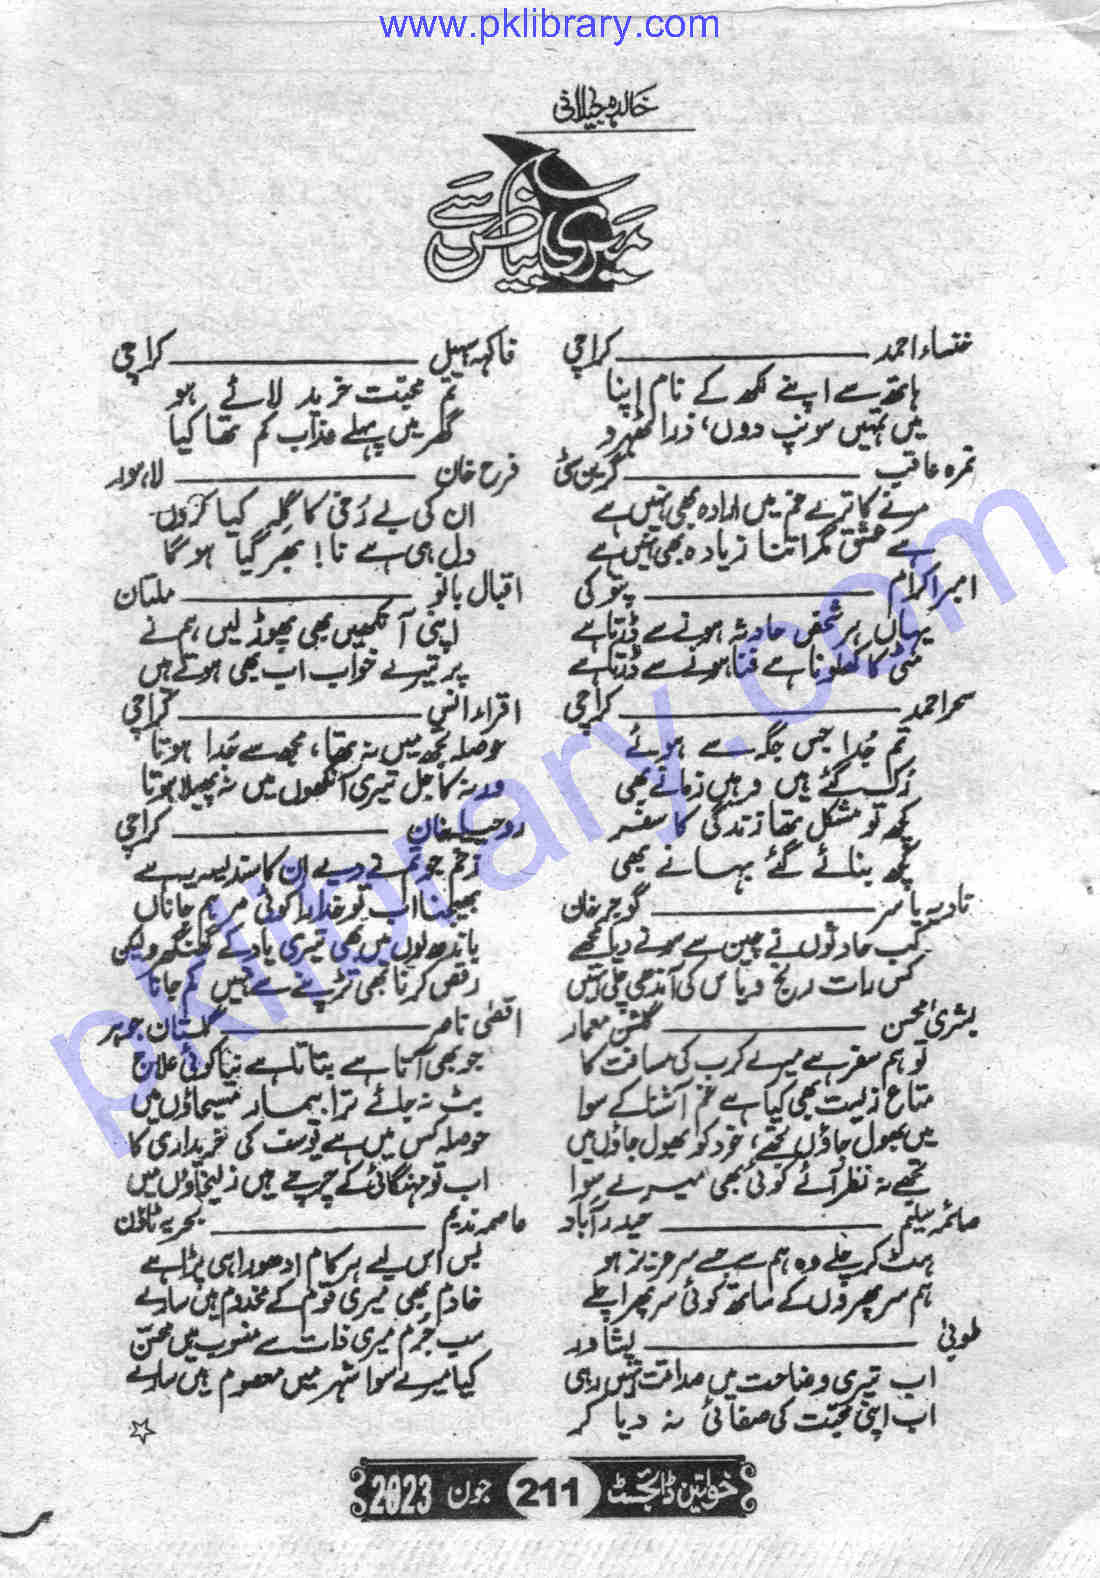 www.pklibrary.com
خالدہ جیلانی
میری بیاض سے
خنساء احمد ــــــ کراچی
ہاتھ سے اپنے لکھ کے نام اپنا
میں تمہیں سونپ دوں، ذرا ٹھہرو
ثمرہ عاقب ــــــ گرین سٹی
مرنے کا ترے غم میں ارادہ بھی نہیں ہے
ہے عشق مگر اتنا زیادہ بھی نہیں ہے
امبر اکرام ــــــ پتوکی
یہاں ہر شخص حادثہ ہونے سے ڈرتا ہے
مٹی کا کھلونا ہے فنا ہونے سے ڈرتا ہے
سحر احمد ــــــ کراچی
تم جُدا جس جگہ سے ہوئے
رُک گئے ہیں وہیں زمانے بھی
کچھ تو مشکل تھا زندگی کا سفر
کچھ بنائے گئے بہانے بھی
نادیہ یاسر ــــــ گوجر خان
کب حادثوں نے چین سے سونے دیا مجھے
کس رات رنج و یاس کی آندھی چلی نہیں
بشریٰ محسن ــــــ گلشن معمار
تو ہم سفر ہے میرے کرب کی مسافت کا
متاع زیست بھی کیا ہے غم آشنا کے سوا
میں بھول جاؤں تجھے، خود کو بھول جاؤں میں
تجھے نہ نظر آئے کوئی بھی میرے سوا
صائمہ سلیم ــــــ حیدر آباد
ہٹ کر چلے وہ ہم سے جسے سر عزیز ہو
ہم سر پھروں کے ساتھ کوئی سر پھرا چلے
طوبیٰ ــــــ پشاور
اب تیری وضاحت میں صداقت نہیں رہی
اب اپنی محبت کی صفائی نہ دیا کر
فاکہہ سہیل ــــــ کراچی
تم محبت خرید لائے ہو
گھر میں پہلے عذاب کم تھا کیا
فرح خان ــــــ لاہور
ان کی بے رُخی کا گلہ کیا کروں
دل ہی ہے نا! بھر گیا ہو گا
اقبال بانو ــــــ ملتان
اپنی آنکھیں بھی پھوڑ لیں ہم نے
پر تیرے خواب اب بھی ہوتے ہیں
اقراء انس ــــــ کراچی
حوصلہ تجھ میں نہ تھا، مجھ سے جُدا ہوتا
ورنہ کاجل تیری آنکھوں میں نہ پھیلا ہوتا
روحیلہ خان ــــــ کراچی
زخم جو تم نے دیے ان کا سندیسہ یہ ہے
بھیجنا اب تو خدارا کوئی مرہم جاناں
باندھ لوں میں بھی تیری یاد کے گھنگھرو لیکن
رقص کرنا بھی تڑپنے سے نہیں کم جاناں
اقصٰی ناصر ــــــ گلستان جوہر
جو بھی آتا ہے بتاتا ہے نیا کوئی علاج
بٹ نہ جائے ترا بیمار مسیحاؤں میں
حوصلہ کس میں ہے یوسف کی خریداری کا
اب تو مہنگائی کے چرچے ہیں زلیخاؤں میں
عاصمہ ندیم ــــــ بحریہ ٹاؤن
بس اس لیے ہر کام ادھورا ہی پڑا ہے
خادم بھی میری قوم کے مخدوم ہیں سارے
سب جُرم میری ذات سے منسوب ہیں محسن
کیا میرے سوا شہر میں معصوم ہیں سارے
خواتین ڈائجسٹ 211 جون 2023
pklibrary.com